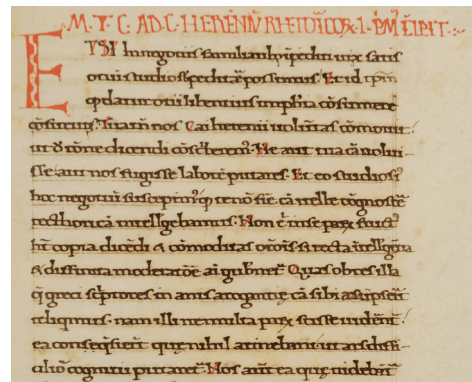 M. T. C. AD. C. HERENIŪ RHETORICOR̄. I.
ETSI In negotiis familiarib; īpediti uix satis
otiū studio suppeditare possumus. Et id ipsū
qd datur otii libentius in
cōsueuim;. Tuā nos Cai herenii uolūtas cōmouit.
ut d̄ rōne dicendi cōscberem;. Ne aut tua cā nolui-
sse. aut nos fugisse laborē putares. Et eo studiosi;
hoc negotiū suscepim; q te nō sine cā uelle cognosce
rethoricā intellgebamus. Non ē in se parū fruct;
copia dicēdi & cōmoditas orōis. si recta
& diffinita moderatōe aī gubnet. Quas ob res illa
q̄ greci scptores in anis arogantie cā sibi asūpsert
reliquimus. nam illi ne multa parū scisse uident.
ea conseqsiert que nihil attinebant. ut ars diffi-
cilior cognitu putaret. Nos aūt ea que uidebant